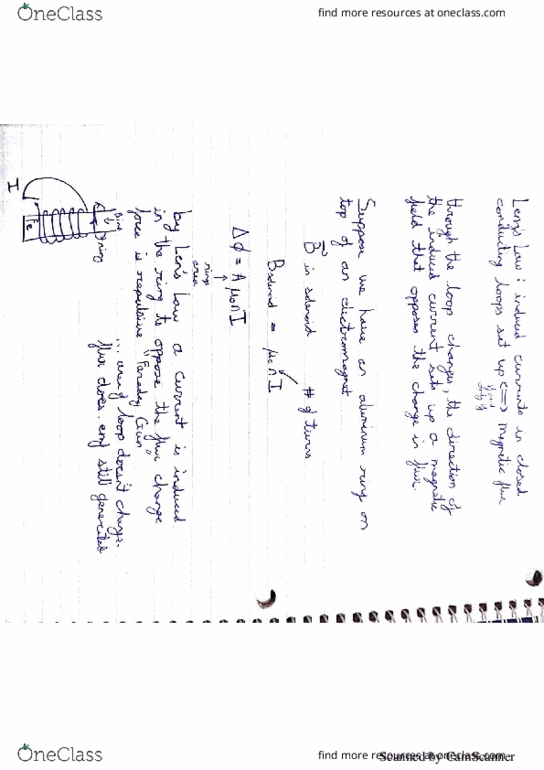 OneClass
find more resources at oneclass.com
Lenz's Law : induced currents in closed
conducting loops set up <=> magnetic flux
through the loop changes, the direction of
the induced current sets up a magnetic
field that opposes the change in flux.
Suppose we have an aluminum ring on
top of an electromagnet
B in solenoid # of turns
Bsolenoid = μ₀ n I
ΔΦ = A μ₀ n I
ring
area
by Lenz's Law a current is induced
in the ring to oppose the flux change
force is repulsive "Faraday Gun"
∴ area of loop doesn't change.
flux does. emf still generated
ring
Fe
I
OneClass
find more resources at oneclass.com
Scanned by CamScanner